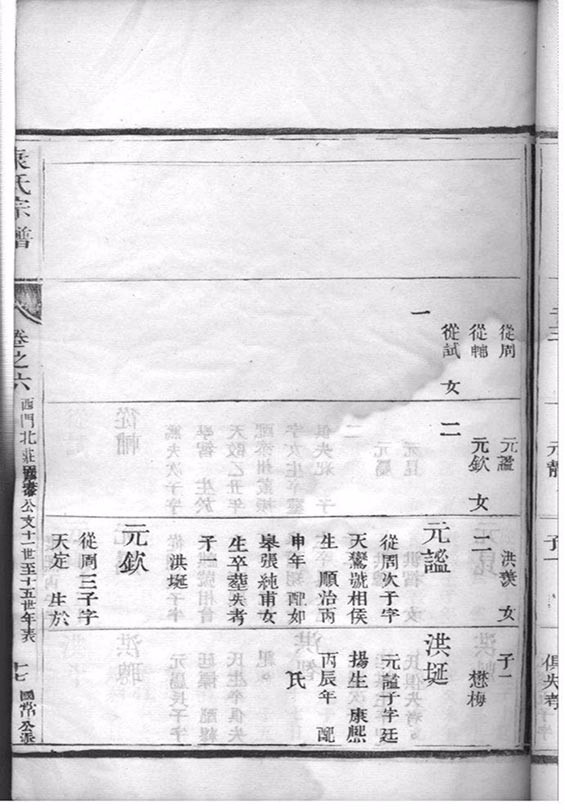 元靜
子一
俱失考
從周
從輔
從試 女
一
元謐
元欽 女
二
洪發 女
二
元謐
從周次子字
天鷟號相侯
生 順治丙
申年 配如
皋張純甫女
生卒塟失考
子一
洪埏
元欽
從周三子字
天定 生於
子一
懋梅
洪埏
元謐子字廷
揚生 康熙
丙辰年 配
氏
氏宗譜
卷之六
西門北莊 公支十一世至十五世年表
十七
國常公派